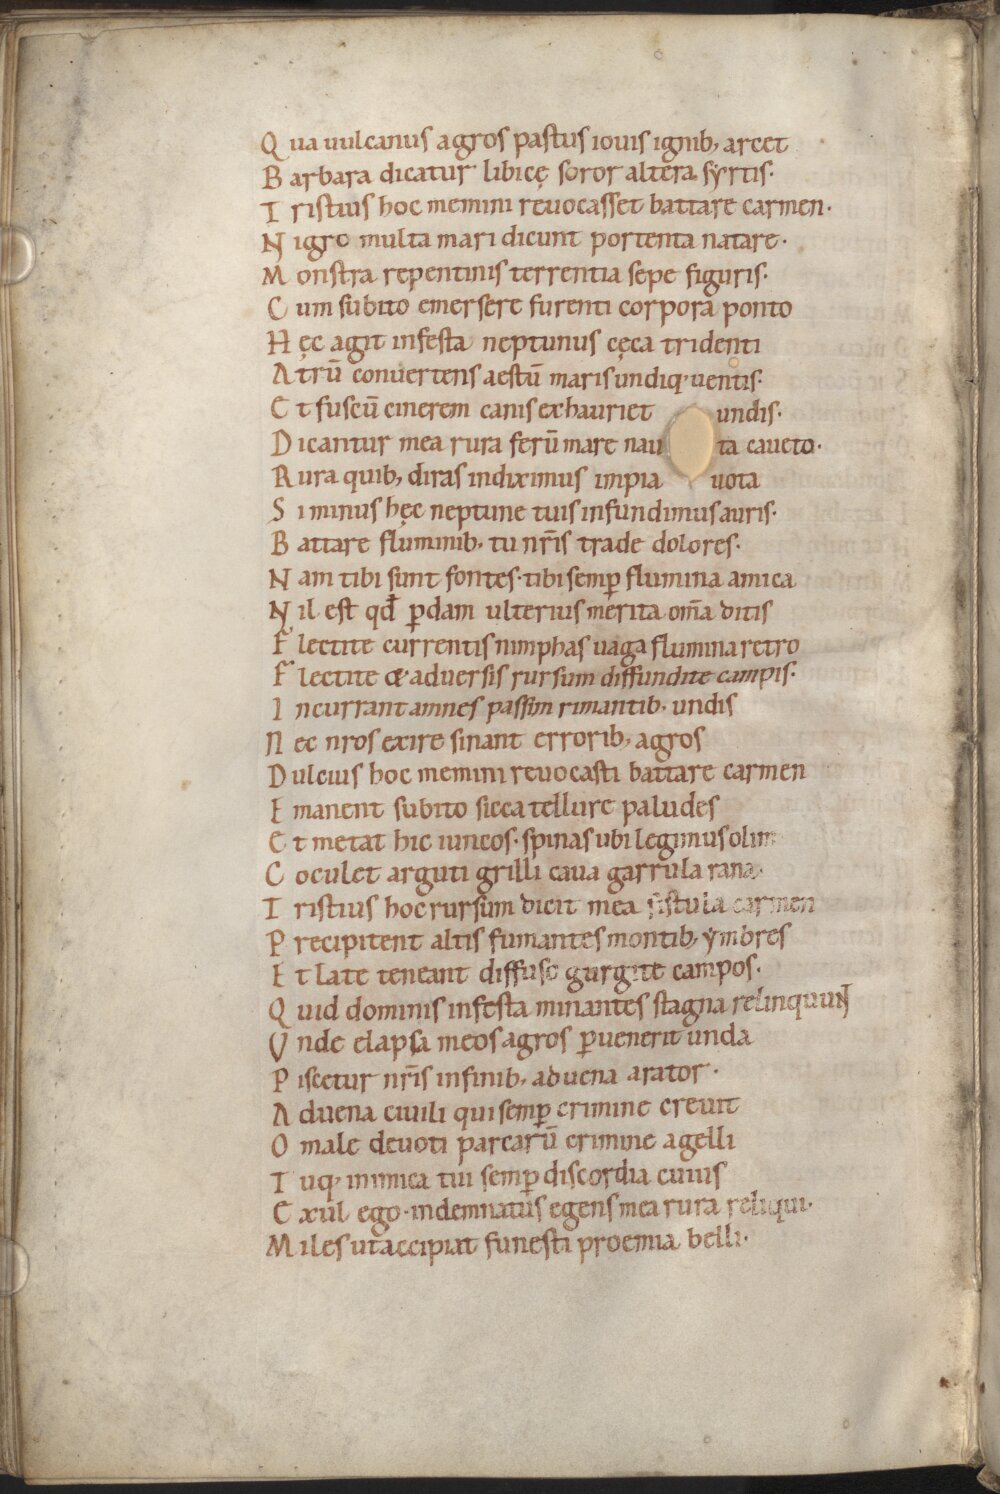 Qua uulcanus agros pastus iouis ignib; arcet
Barbara dicatur libicę soror altera syrtis·
Tristius hoc memini reuocasset battare carmen·
Nigro multa mari dicunt portenta natare·
Monstra repentinis terrentia sepe figuris·
Cum subito emersere furenti corpora ponto
Hęc agit infesta neptunus cęca tridenti
Atrū conuertens aestū maris undiq; uentis·
Et fuscū cinerem canis exhauriet undis·
Dicantur mea rura ferū mare nauta caueto·
Rura quib; diras indiximus impia uota
Si minus hęc neptune tuis infundimus auris·
Battare fluminib; tu nr̄is trade dolores·
Nam tibi sunt fontes· tibi semꝑ flumina amica
Nil est qđ ꝑdam ulterius merita om̄a ditis
Flectite currentis nimphas uaga flumina retro
Flectite & aduersis rursum diffundite campis·
Incurrant amnes passim rimantib; undis
Nec nros exire sinant errorib; agros
Dulcius hoc memini reuocasti battare carmen
Emanent subito sicca tellure paludes
Et metat hic iuncos· spinas ubi legimus olim
Coculet arguti grilli caua garrula rana·
Tristius hoc rursum dicit mea fistula carmen
Precipitent altis fumantes montib; ymbres
Et late teneant diffuso gurgite campos·
Quid dominis infesta minantes stagna relinquuN
Vnde elapsa meos agros ꝑuenerit unda
Piscetur nr̄is in finib; aduena arator·
Aduena ciuili qui semꝑ crimine creuit
O male deuoti parcarū crimine agelli
Tuq; inimica tui semꝑ discordia ciuis
Exul ego· indemnatus egens mea rura reliqui·
Miles ut accipiat funesti proemia belli·